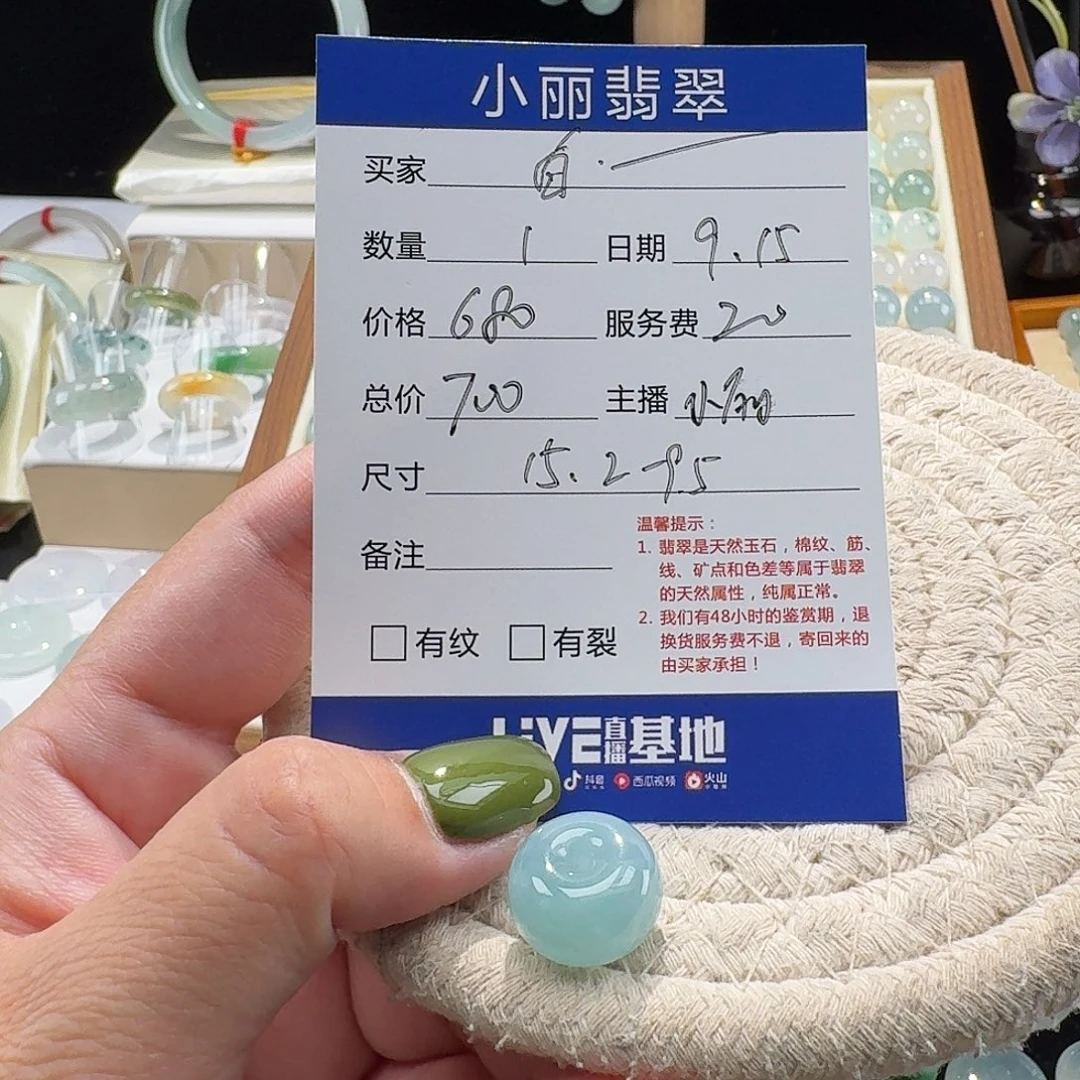 小丽翡翠
买家 自
数量 1 日期 9.15
价格 680 服务费 20
总价 700 主播 小丽
尺寸 15.2 9.5
备注
温馨提示：
1. 翡翠是天然玉石，棉纹、筋、
线、矿点和色差等属于翡翠
的天然属性，纯属正常。
2. 我们有48小时的鉴赏期，退
换货服务费不退，寄回来的
由买家承担！
有纹 有裂
LiVE直播基地
抖音 西瓜视频 火山